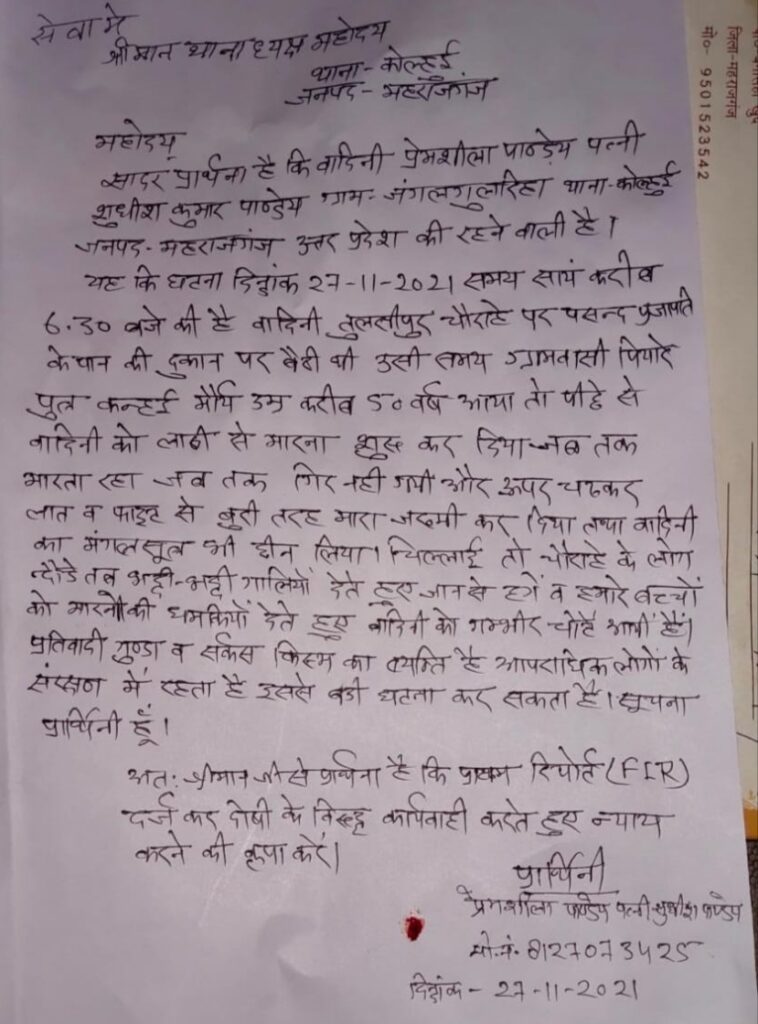 सेवा मे
श्रीमान थानाध्यक्ष महोदय
थाना- कोल्हुई
जनपद- महराजगंज
महोदय
सादर प्रार्थना है कि वादिनी प्रेमशीला पाण्डेय पत्नी
शुधीश कुमार पाण्डेय ग्राम- जंगलगुलरिहा थाना-कोल्हुई
जनपद- महराजगंज उत्तर प्रदेश की रहने वाली है।
यह कि घटना दिनांक 27-11-2021 समय सायं करीब
6.30 बजे की है वादिनी तुलसीपुर चौराहे पर पसन्द प्रजापति
के पान की दुकान पर बैठी थी उसी समय ग्रामवासी पियारे
पुत्र कन्हई मौर्य उम्र करीब 50 वर्ष आया तो पीछे से
वादिनी को लाठी से मारना शुरु कर दिया जब तक
मारता रहा जब तक गिर नही गयी और ऊपर चढकर
लात व फाइट से बुरी तरह मारा जख्मी कर दिया तथा वादिनी
का मंगलसूत्र भी छीन लिया। चिल्लाई तो चौराहे के लोग
दौडे तब भद्दी-भद्दी गालियाँ देते हुए जान से हमें व हमारे बच्चों
को मारने की धमकियाँ देते हुए वादिनी को गम्भीर चोटें आयीं हैं।
प्रतिवादी गुण्डा व सर्कस किस्म का व्यक्ति है आपराधिक लोगों के
संरक्षण में रहता है इससे बडी घटना कर सकता है। सूचना
प्रार्थिनी हूँ।
अतः श्रीमान जी से प्रार्थना है कि प्रथम रिपोर्ट (FIR)
दर्ज कर दोषी के विरुद्ध कार्यवाही करते हुए न्याय
करने की कृपा करें।
प्रार्थिनी
प्रेमशीला पाण्डेय पत्नी सुधीश पाण्डेय
मो.नं. 8127073425
दिनांक - 27-11-2021
जिला-महराजगंज
मो०- 9501523542